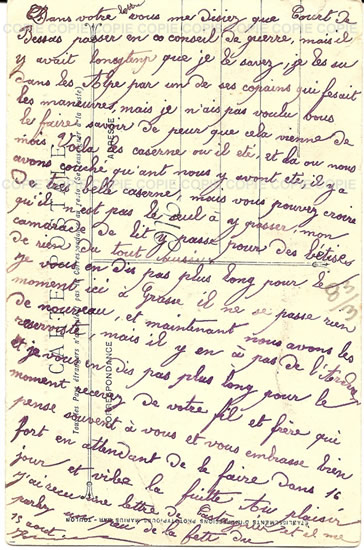 Dans votre lettre vous me disiez que Court de
Bessas passer en conseil de guerre, mais il
y avait longtemp que je le savez, je les su
dans les Alpe par un de ses copains qui fesait
les manœuvres, mais je n'ais pas voulu vous
le faire savoir de peur que cela vienne de
mois voila les caserne ou il ete, et la ou nous
avons couche quant nous y avont ete, il y a
une tres belle caserne, mais vous pouvez croire
qu'il est pas le seul a y passer, mon
camarade de lit y passe pour des bêtises
de rien du tout
je vous en dis pas plus long pour le
moment ici à Grasse il ne se passe rien
de nouveau, et maintenant nous avons les
reserviste, mais il y en a pas de l'
et je vous en dis pas plus long pour le
moment recevez de votre fils et frère qui
pense souvent à vous et vous embrasse bien
fort en attendant de le faire dans 16
jour et viba la fuitte tou plaisir
j'ai recu une lettre de et il me
parlez un peu de la fete du
15 aout
CARTE POSTALE
CORRESPONDANCE
ADRESSE
COPIE